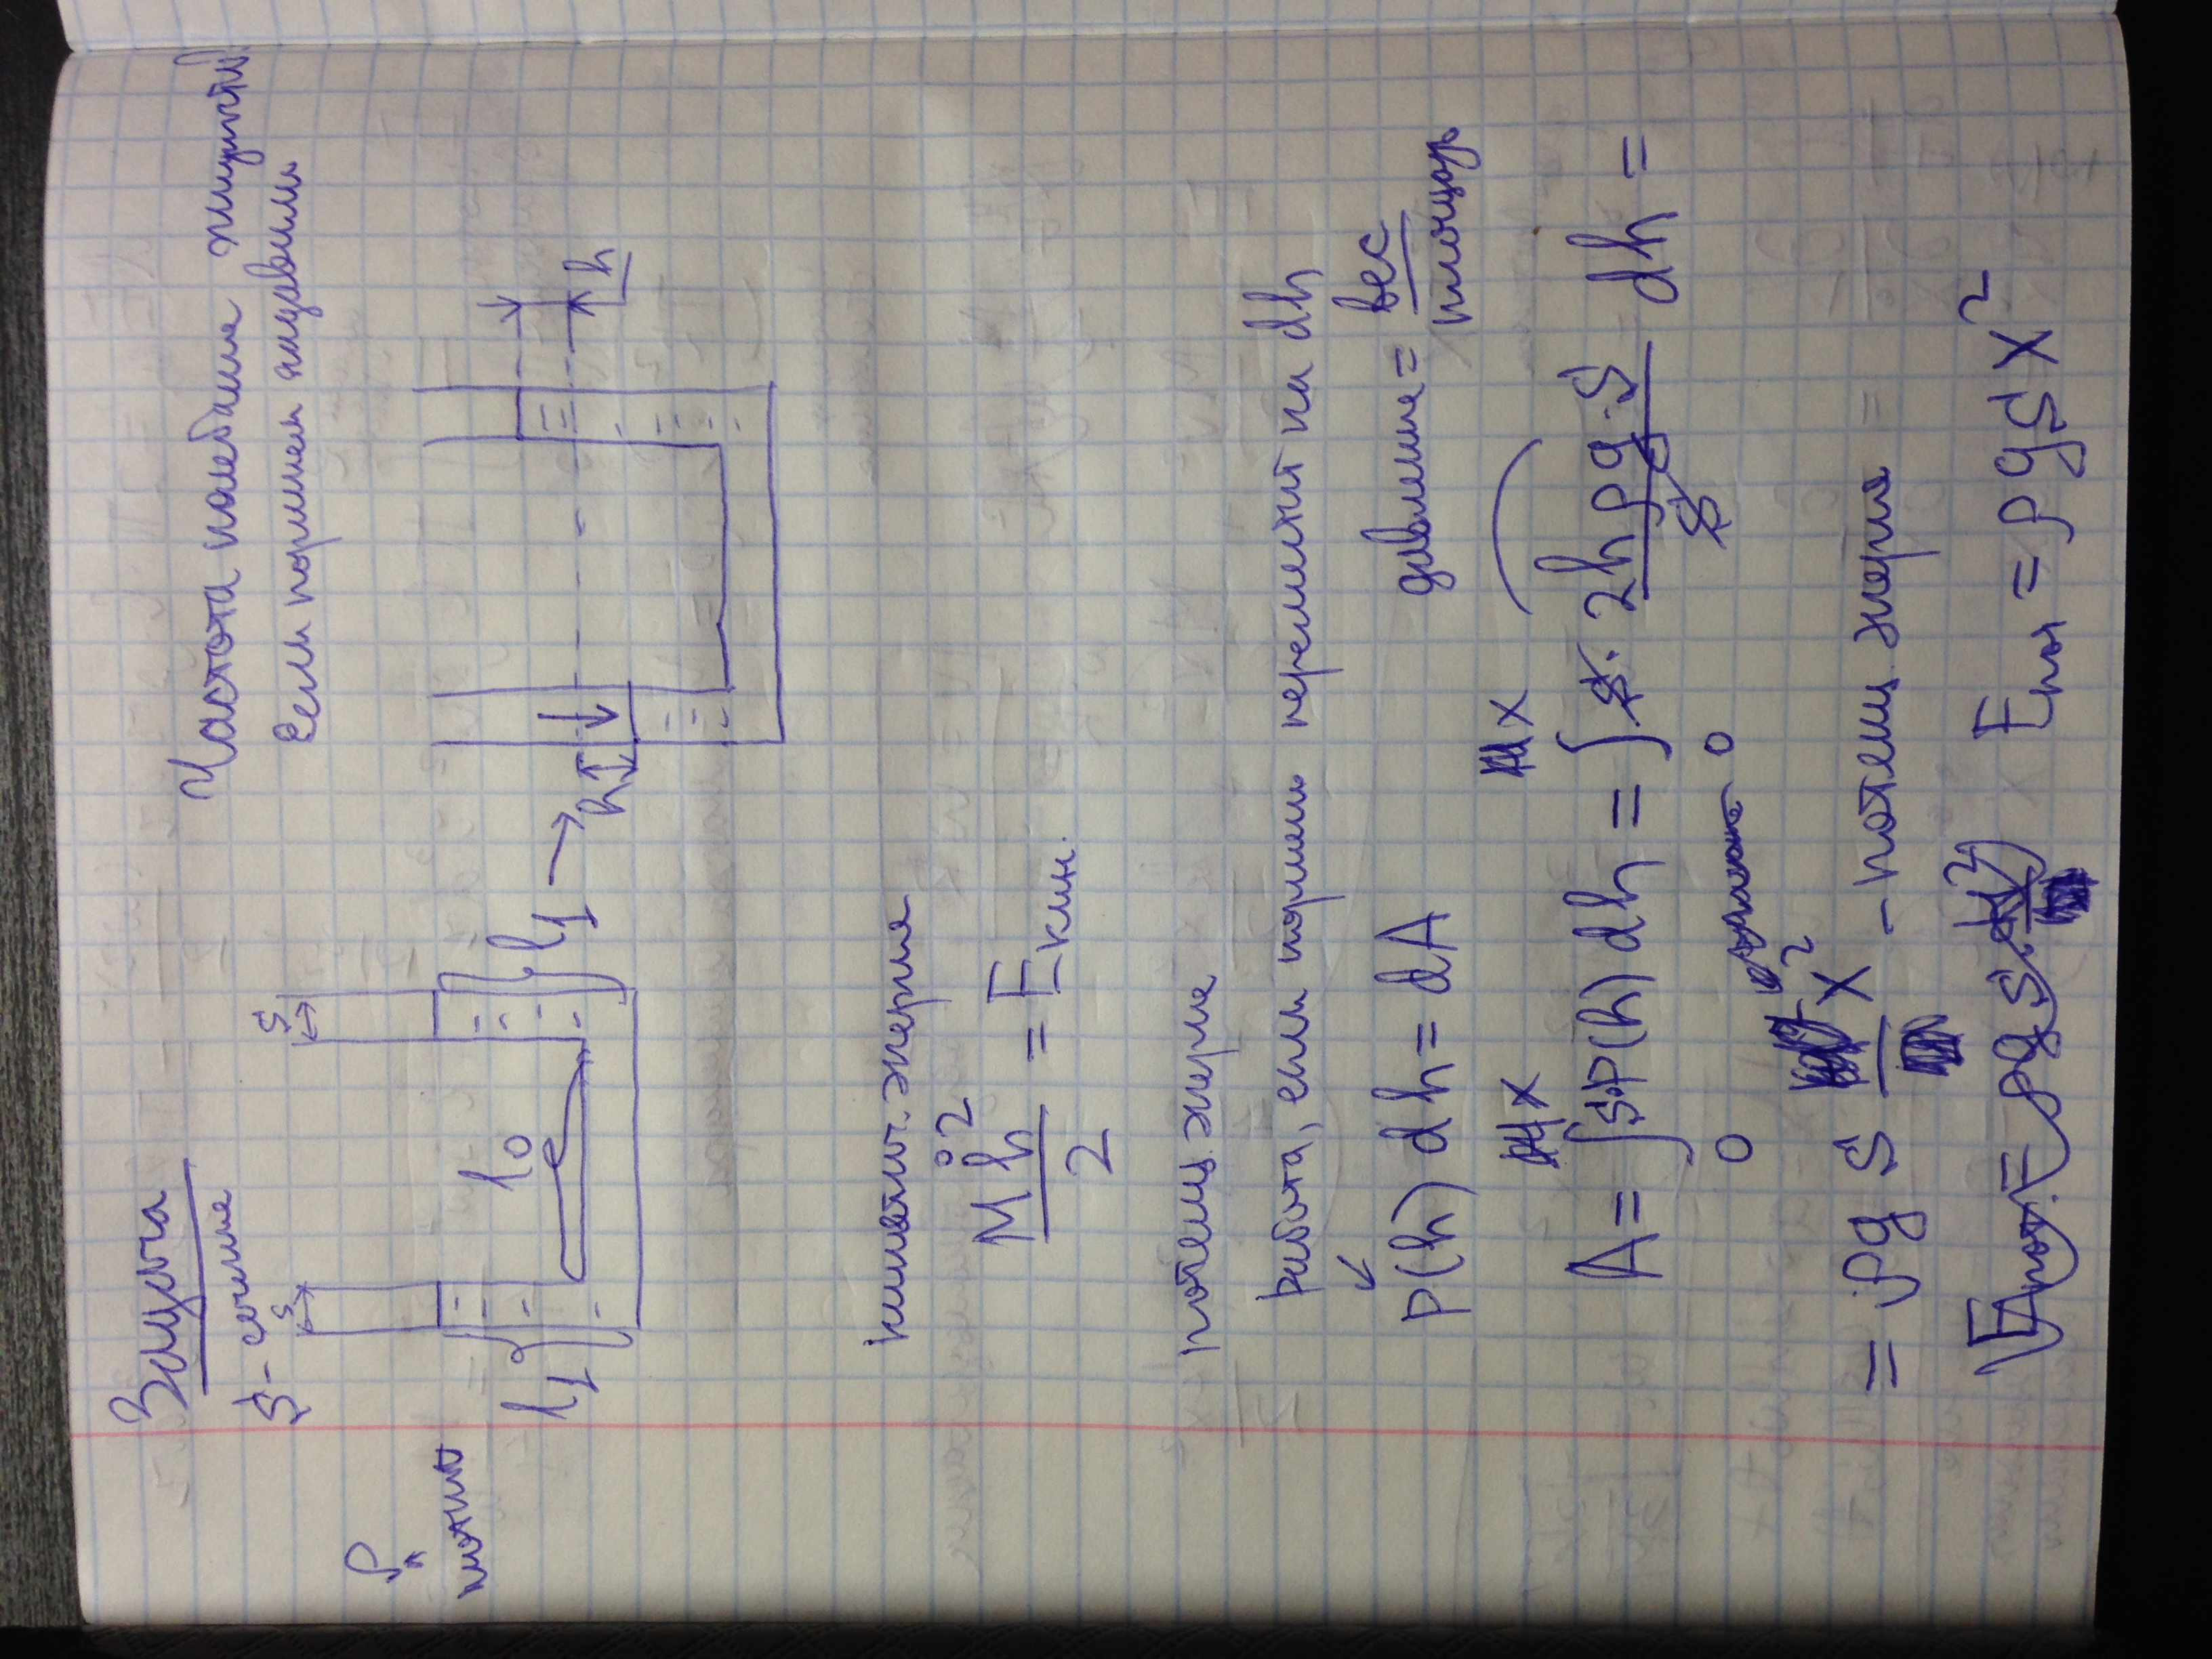 Задача
S - сечение
Частота колебания жидкости
Если поршнем надавили
S
S
ρ
плотн
l₁
l₀
l₁ →
h
h
кинетич. энергия
Mḣ²/2 = Eкин.
потенц. энергия
работа, если поршень переместит на dh
P(h) dh = dA
давление = вес/площадь
A = ∫₀ˣ S·P(h) dh = ∫₀ˣ S · 2hρg·S/S dh =
= ρg S x² - потенц. энергия
Eпот = ρgSx²